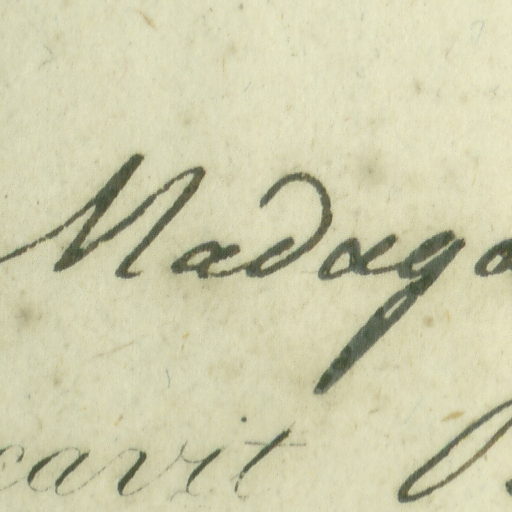 Madaga
cavit